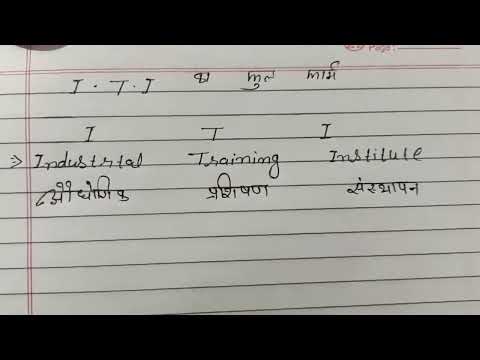 Page:
I.T.I का फुल फार्म
I T I
⇒ Industrial Training Institute
औधोगिक प्रशिषण संस्थापन